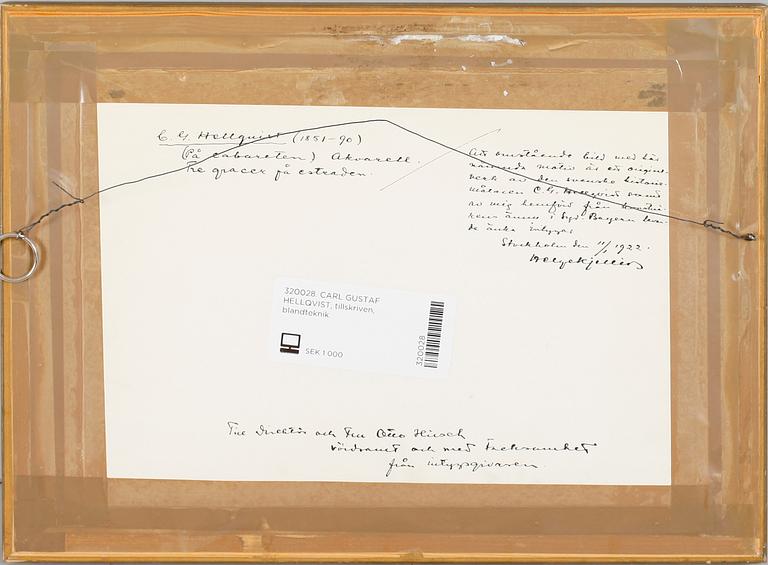 C. G. Hellqvist (1851-90)
(På Cabareten) Akvarell.
Tre gracer på estraden.
Att omstående bild med här
nämnda motiv är ett original-
verk av den svenske historie-
målaren C. G. Hellqvist samt
av mig hemförd från konstnä-
rens änns i Syd-Bayern leva-
de änka intygas
Stockholm den 11/1 1922.
Helge Kjellin
320028. CARL GUSTAF
HELLQVIST, tillskriven,
blandteknik
SEK 1 000
320028
Direktör och Fru Otto Hirsch
vördsamt och med Tacksamhet
från intygsgivaren.